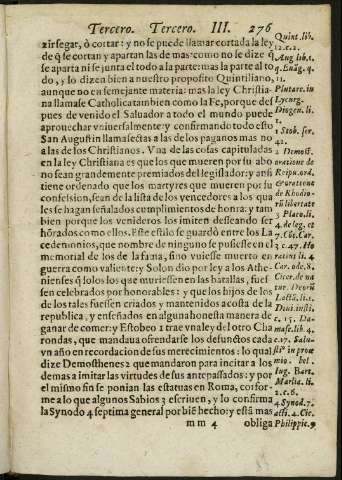 Tercero. Tercero. III. 276
zir segar, ò cortar: y no se puede llamar cortada la ley
de q̃ se cortan y apartan las de mas: como no se dize q̃
se aparta ni se junta el todo a la parte: mas la parte al to
do, y lo dizen bien a nuestro proposito Quintiliano,
aunque no en semejante materia: mas la ley Christia-
na llamase Catholica tambien como la Fe, porque des
pues de venido el Saluador a todo el mundo puede
aprouechar vniuersalmente: y confirmando todo esto
San Augustin llamasectas a las de los paganos mas no
a las de los Christianos. Vna de las cosas capituladas
en la ley Christiana es que los que mueren por su abo
no sean grandemente premiados del legislador: y ansi
tiene ordenado que los martyres que mueren por su
confession, sean de la lista de los vencedores a los qua
les se hagan señalados cumplimientos de honra: y tam
bien porque los venideros los imiten desseando ser
hõrados como ellos. Este estilo se guardò entre los La
cedemonios, que nombre de ninguno se pusiesse en el
memorial de los de la fama, sino vuiesse muerto en
guerra como valiente: y Solon dio por ley a los Athe-
nienses q̃ solo los que muriessen en las batallas, fues
sen celebrados por honorables: y que los hijos de los
de los tales fuessen criados y mantenidos acosta de la
republica, y enseñados en alguna honesta manera de
ganar de comer: y Estobeo 1 trae vna ley del otro Cha
rondas, que mandaua ofrendarse los defunctos cada
vn año en recordacion de sus merecimientos: lo qual
dize Demosthenes 2 que mandaron para incitar a los
demas a imitar las virtudes de sus antepassados: y por
el mismo fin se ponian las estatuas en Roma, confor-
me a lo que algunos Sabios 3 escriuen, y lo confirma
la Synodo 4 septima general por biẽ hecho: y està mas
mm 4 obliga
Quint. lib.
12. c. 2.
Aug lib. 1.
q. Euãg. q.
11.
Plutarc. in
Lycurg.
Diogen. li.
1.
1 Stob. ser.
42.
2 Demost.
oratione de
Repu. ord.
& oratione
de Rhodio-
rũ libertate
3 Plato. li.
4. de leg. et
7. Cic. Car.
3 c. 47. Ho
ratius li. 4
Car. ode. 8.
Cicer. de na
tur. Deorũ
Lactã. li. 1.
Diui. insti.
c. 15. Da-
masc. lib. 4.
c. 17. Salu-
stiꝰ in proæ
mio. bel.
Iug. Bart.
Marlia. li.
2. c. 6.
4 Synod. 7.
acti. 4. Cic.
Philippic. 9